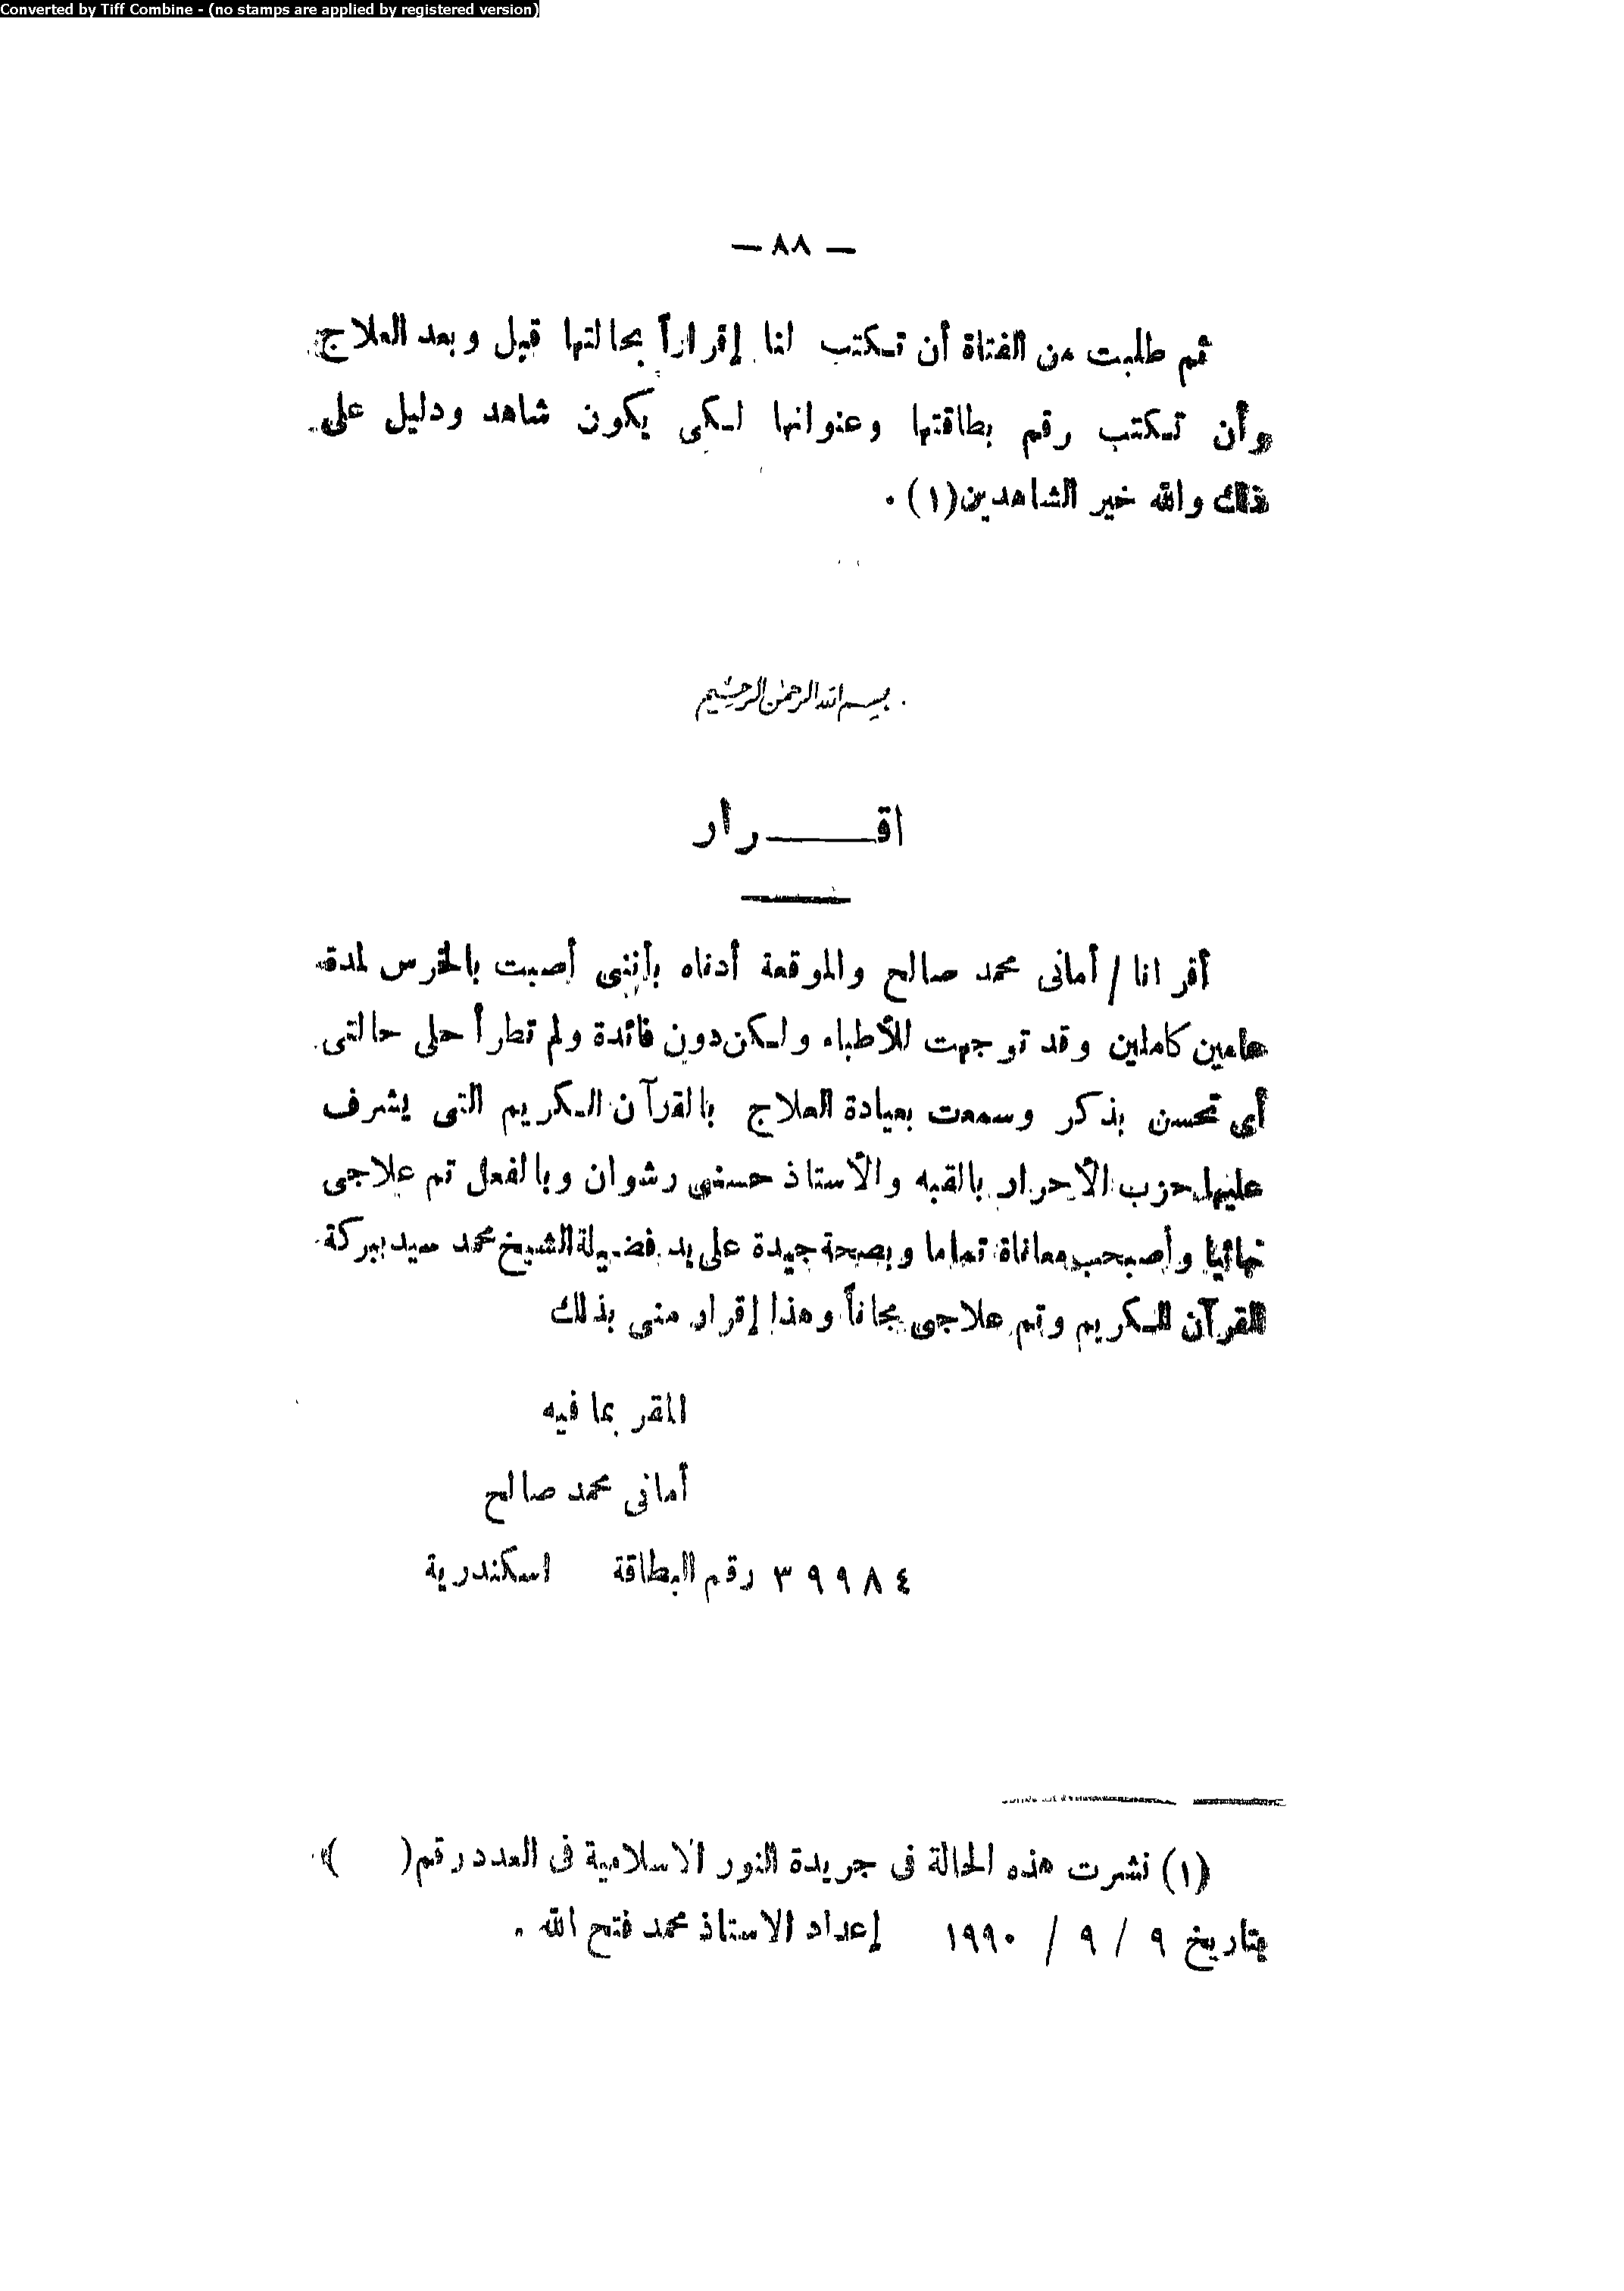 Converted by Tiff Combine - (no stamps are applied by registered version)
— ٨٨ —
ثم طلبت من الفتاة أن تكتب لنا إقراراً بحالتها قبل وبعد العلاج
وأن تكتب رقم بطاقتها وعنوانها لكى يكون شاهد ودليل على
ذلك والله خير الشاهدين(١) .
بسم الله الرحمن الرحيم
اقـــــرار
أقر انا / أمانى محمد صالح والموقعة أدناه بأننى أصبت بالخرس لمدة
عامين كاملين وقد توجهت للأطباء ولكن دون فائدة ولم تطرأ حلى حالتى
أى تحسن بذكر وسمعت بعيادة العلاج بالقرآن الكريم التى يشرف
عليها حزب الأحرار بالقبه والأستاذ حسنى رشوان وبالفعل تم علاجى
نهائيا وأصبحب معاناة تماما وبصحة جيدة على يد فضيلة الشيخ محمد سيد ببركة
القرآن الكريم وتم علاجى مجاناً وهذا إقرار منى بذلك
المقر بما فيه
أمانى محمد صالح
٣٩٩٨٤ رقم البطاقة اسكندرية
(١) نشرت هذه الحالة فى جريدة النور الاسلامية فى العدد رقم( )
بتاريخ ٩ / ٩ / ١٩٩٠ إعداد الاستاذ محمد فتح الله .